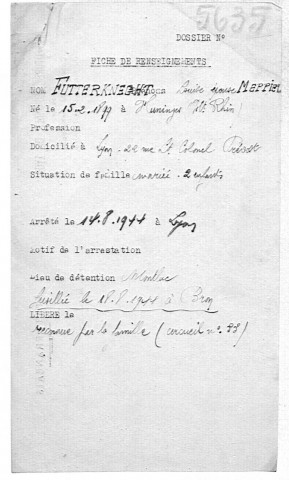 5635
DOSSIER N°
FICHE DE RENSEIGNEMENTS
NOM FUTTERKNECHT Prénoms Lucie épouse Meppiel
Né le 15-2-1899 à Huningue (Ht Rhin)
Profession
Domicilié à Lyon - 22 rue Lt Colonel Prévost
Situation de famille mariée - 2 enfants
Arrêté le 14.8.1944 à Lyon
Motif de l'arrestation
Lieu de détention Montluc
fusillée le 18.8.1944 à Bron
LIBERE le
reconnue par la famille (cercueil n°